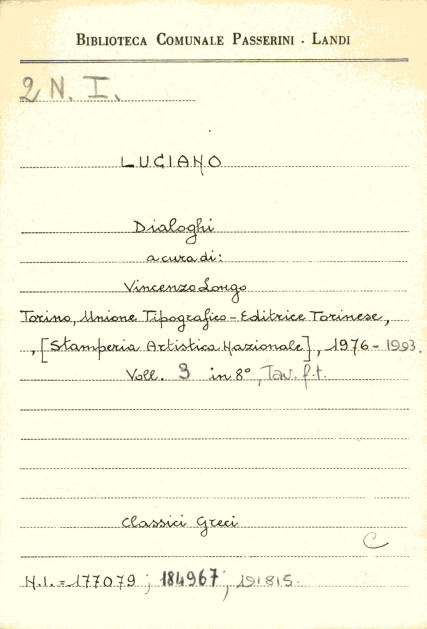 BIBLIOTECA COMUNALE PASSERINI - LANDI
2 N. I.
LUCIANO
Dialoghi
a cura di:
Vincenzo Longo
Torino, Unione Tipografico-Editrice Torinese,
, [Stamperia Artistica Nazionale], 1976-1993.
Voll. 3 in 8°, Tav. f.t.
Classici Greci
C
N.I. = 177079 ; 184967 ; 191815.